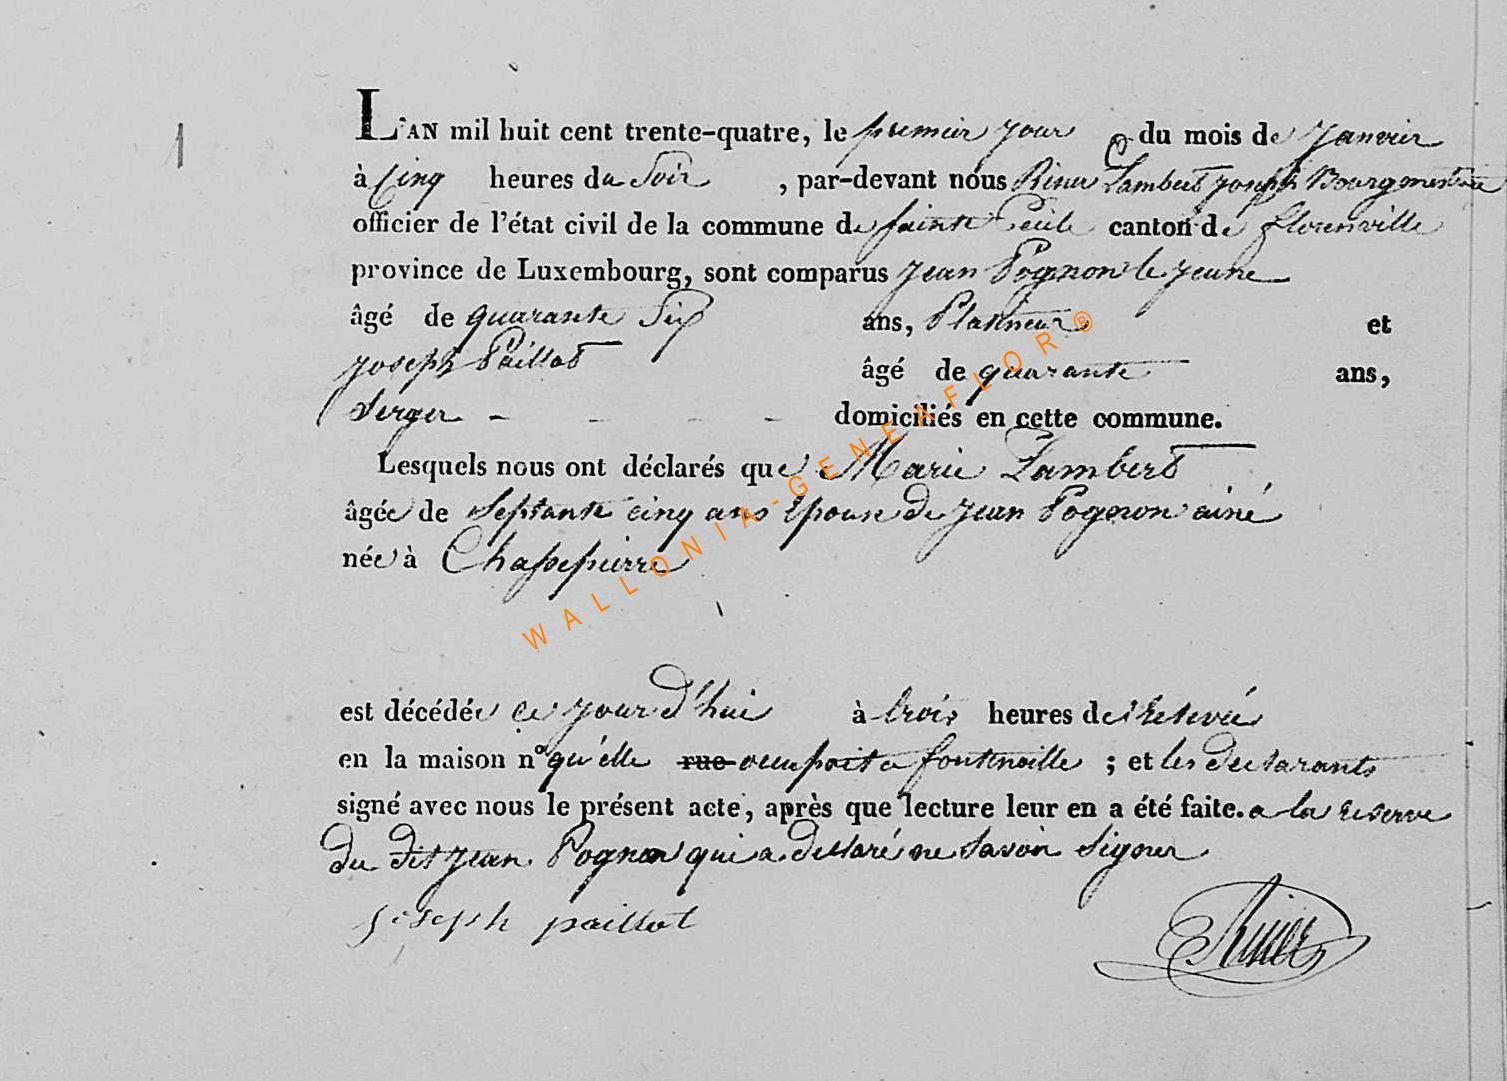 1
L'AN mil huit cent trente-quatre, le premier jour du mois de Janvier
à Cinq heures du Soir , par-devant nous Riner Lambert joseph Bourgmestre
officier de l'état civil de la commune de sainte Cécile canton de florenville
province de Luxembourg, sont comparus Jean Pognon le jeune
âgé de quarante Six ans, et
joseph Paillot âgé de quarante ans,
Serger - - - - domiciliés en cette commune.
Lesquels nous ont déclarés que Marie Lambert
âgée de Septante cinq ans Epouse de Jean Pognon ainé
née à Chassepierre
est décédée ce jour d'hui à trois heures de Relevée
en la maison n° qu'elle rue occupoit a fontenoille ; et les declarants
signé avec nous le présent acte, après que lecture leur en a été faite. a la reserve
du dit Jean Pognon qui a declaré ne Savoir Signer
joseph paillot
Riner
WALLONIA-GENEAFLOR®